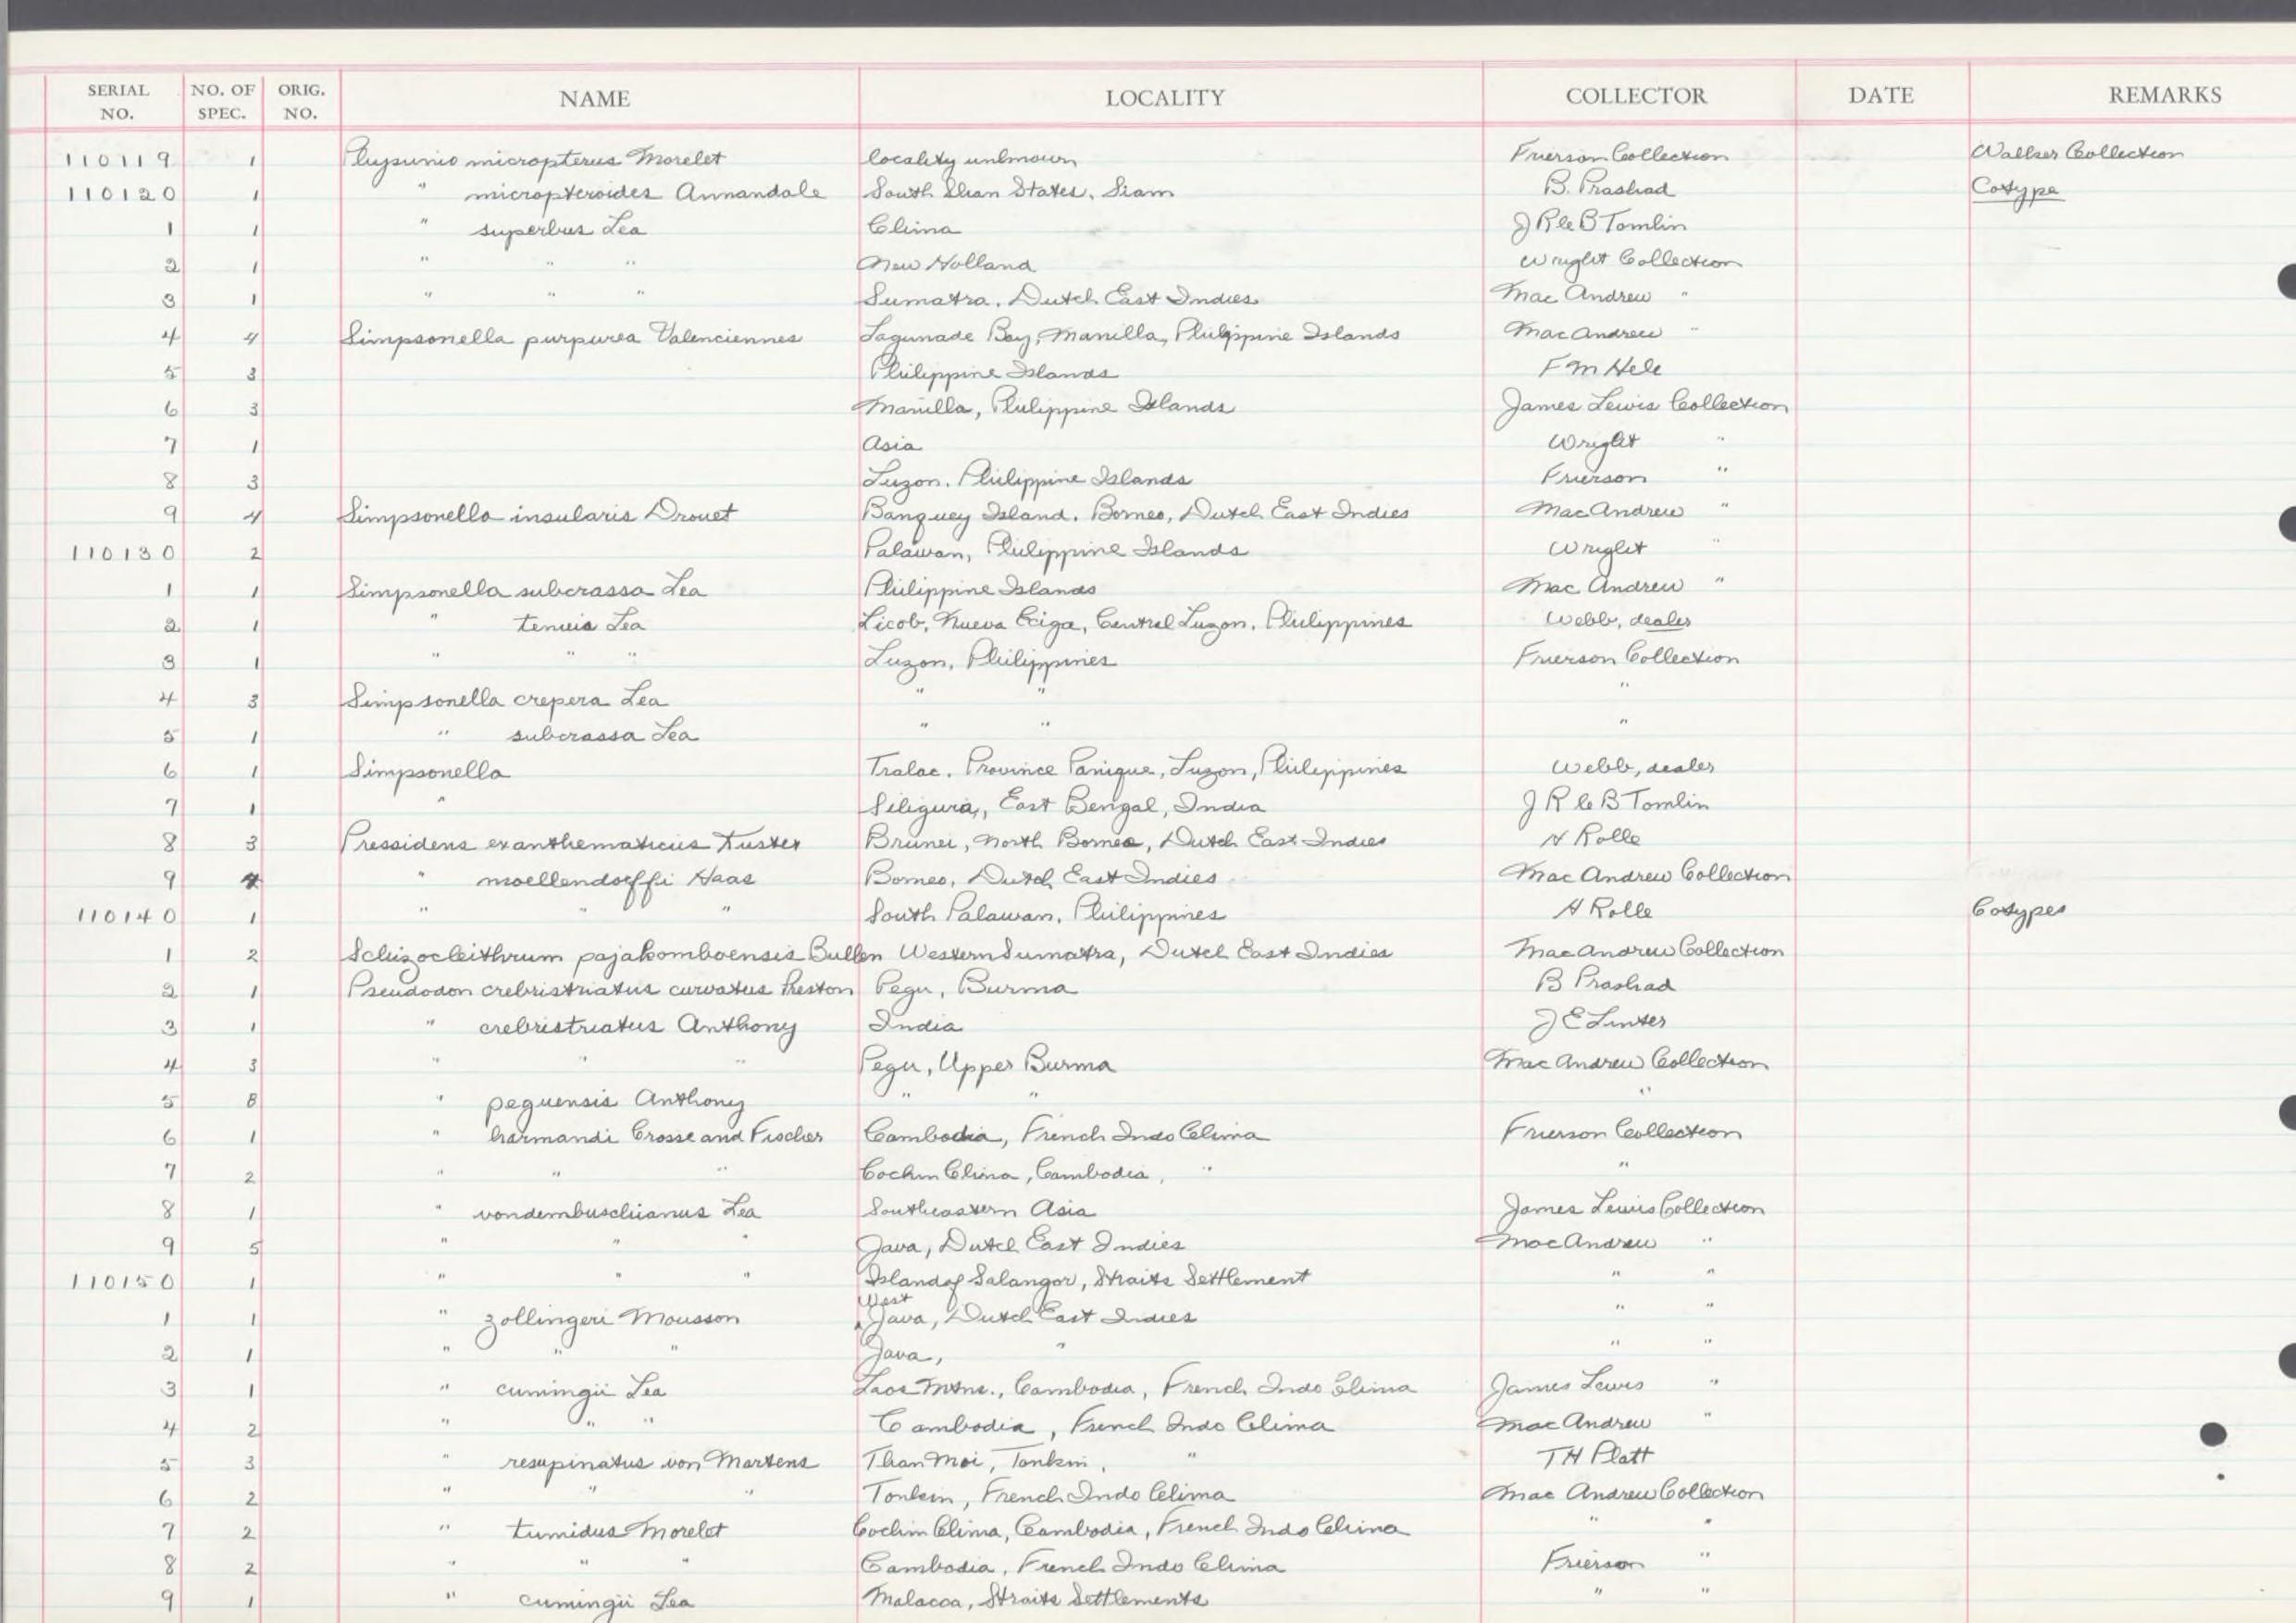 SERIAL NO. NO. OF SPEC. ORIG. NO. NAME LOCALITY COLLECTOR DATE REMARKS
110119 1 Physunio micropterus Morelet locality unknown Frierson Collection Walker Collection
110120 1 " micropteroides Annandale South Shan States, Siam B. Prashad Cotype
1 1 " superbus Lea China J R le B Tomlin
2 1 " " " New Holland Wright Collection
3 1 " " " Sumatra, Dutch East Indies Mac Andrew "
4 4 Simpsonella purpurea Valenciennes Lagunade Bay, Manilla, Philippine Islands MacAndrew "
5 3 Philippine Islands F M Hele
6 3 Manilla, Philippine Islands James Lewis Collection
7 1 Asia Wright "
8 3 Luzon, Philippine Islands Frierson "
9 4 Simpsonella insularis Drouet Banguey Island, Borneo, Dutch East Indies MacAndrew "
110130 2 Palawan, Philippine Islands Wright "
1 1 Simpsonella subcrassa Lea Philippine Islands Mac Andrew "
2 1 " tenuis Lea Licob, Nueva Eciga, Central Luzon, Philippines Webb, dealer
3 1 " " " Luzon, Philippines Frierson Collection
4 3 Simpsonella crepera Lea " " "
5 1 " subcrassa Lea " " "
6 1 Simpsonella Tralac, Province Panique, Luzon, Philippines Webb, dealer
7 1 " Siliguri, East Bengal, India J R le B Tomlin
8 3 Pressidens exanthematicus Kuster Brunei, North Borneo, Dutch East Indies H Rolle
9 4 " moellendorffi Haas Borneo, Dutch East Indies Mac Andrew Collection
110140 1 " " " South Palawan, Philippines H Rolle Cotypes
1 2 Schizocleithrum pajakomboensis Bullen Western Sumatra, Dutch East Indies MacAndrew Collection
2 1 Pseudodon crebristriatus curvatus Preston Pegu, Burma B Prashad
3 1 " crebristriatus Anthony India J E Linter
4 3 " " " Pegu, Upper Burma Mac Andrew Collection
5 8 " peguensis Anthony " " "
6 1 " harmandi Crosse and Fischer Cambodia, French Indo China Frierson Collection
7 2 " " " Cochin China, Cambodia, " "
8 1 " vondembuschianus Lea Southeastern Asia James Lewis Collection
9 5 " " " Java, Dutch East Indies MacAndrew "
110150 1 " " " Island of Salangor, Straits Settlement " "
1 1 " zollingeri Mousson West Java, Dutch East Indies " "
2 1 " " " Java, " " "
3 1 " cumingii Lea Laos Mtns., Cambodia, French Indo China James Lewis "
4 2 " " " Cambodia, French Indo China MacAndrew "
5 3 " resupinatus von Martens Than Moi, Tonkin, " T H Platt
6 2 " " " Tonkin, French Indo China Mac Andrew Collection
7 2 " tumidus Morelet Cochin China, Cambodia, French Indo China " "
8 2 " " " Cambodia, French Indo China Frierson "
9 1 " cumingii Lea Malacca, Straits Settlements " "